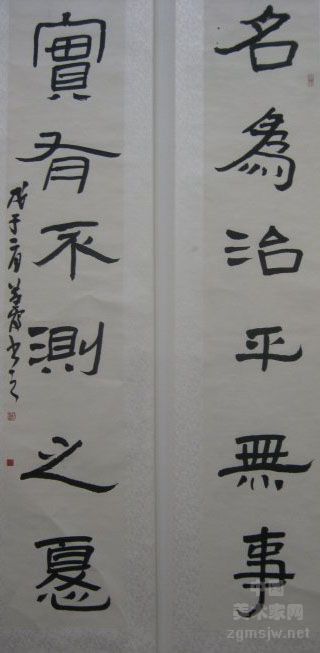 名爲治平無事
實有不測之憂
戊子二月
中国
美术家网
zgmsjw.net